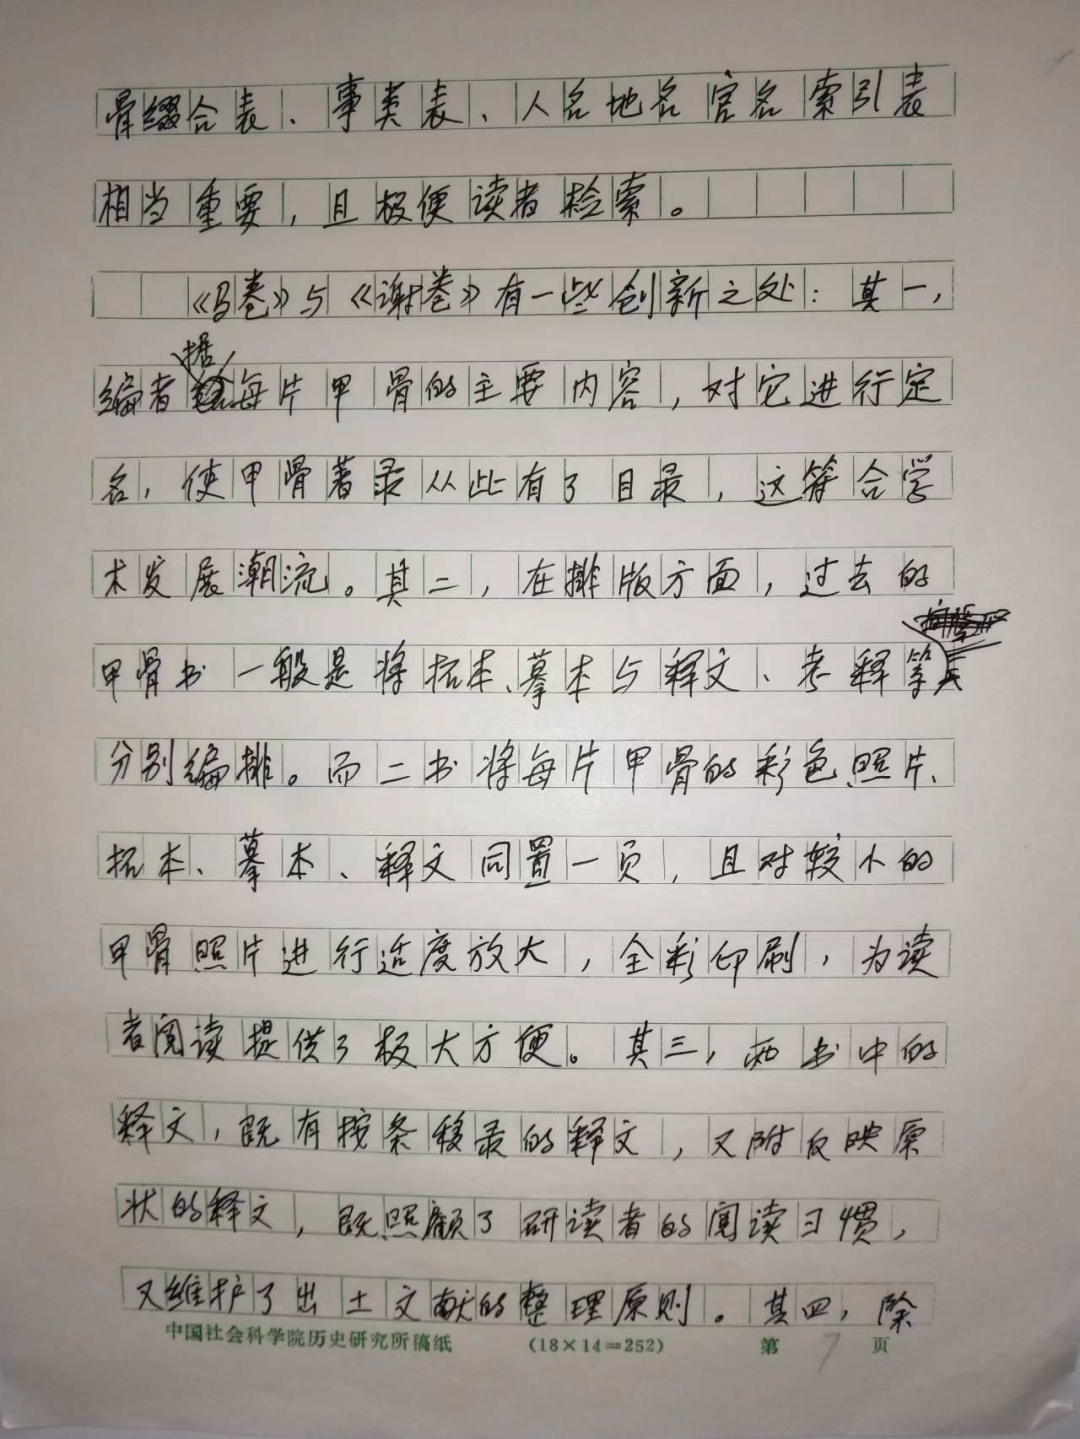 骨缀合表、事类表、人名地名官名索引表
相当重要，且极便读者检索。
《马卷》与《谢卷》有一些创新之处：其一，
编者据每片甲骨的主要内容，对它进行定
名，使甲骨著录从此有了目录，这符合学
术发展潮流。其二，在排版方面，过去的
甲骨书一般是将拓本、摹本与释文、考释等
分别编排。而二书将每片甲骨的彩色照片、
拓本、摹本、释文同置一页，且对较小的
甲骨照片进行适度放大，全彩印刷，为读
者阅读提供了极大方便。其三，两书中的
释文，既有按条移录的释文，又附反映原
状的释文，既照顾了研读者的阅读习惯，
又维护了出土文献的整理原则。其四，除
中国社会科学院历史研究所稿纸 (18×14=252) 第 7 页